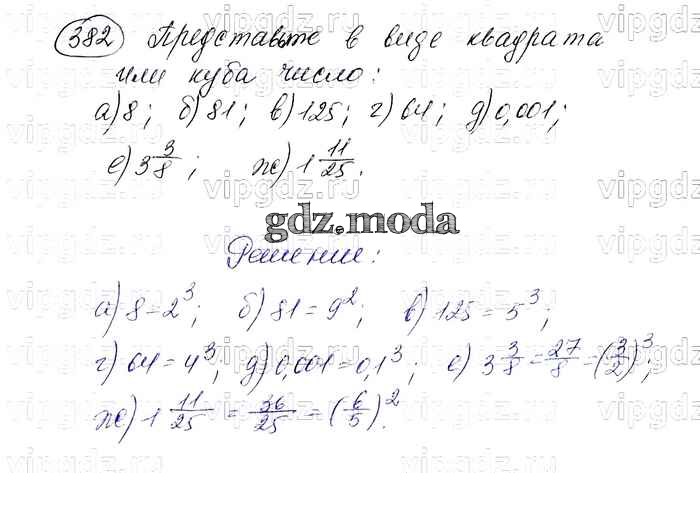 382 Представьте в виде квадрата
или куба число:
а) 8; б) 81; в) 125; г) 64; д) 0,001;
е) 3 3/8; ж) 1 11/25.
gdz.moda
Решение:
а) 8 = 2³; б) 81 = 9²; в) 125 = 5³;
г) 64 = 4³; д) 0,001 = 0,1³; е) 3 3/8 = 27/8 = (3/2)³;
ж) 1 11/25 = 36/25 = (6/5)².
vipgdz.ru